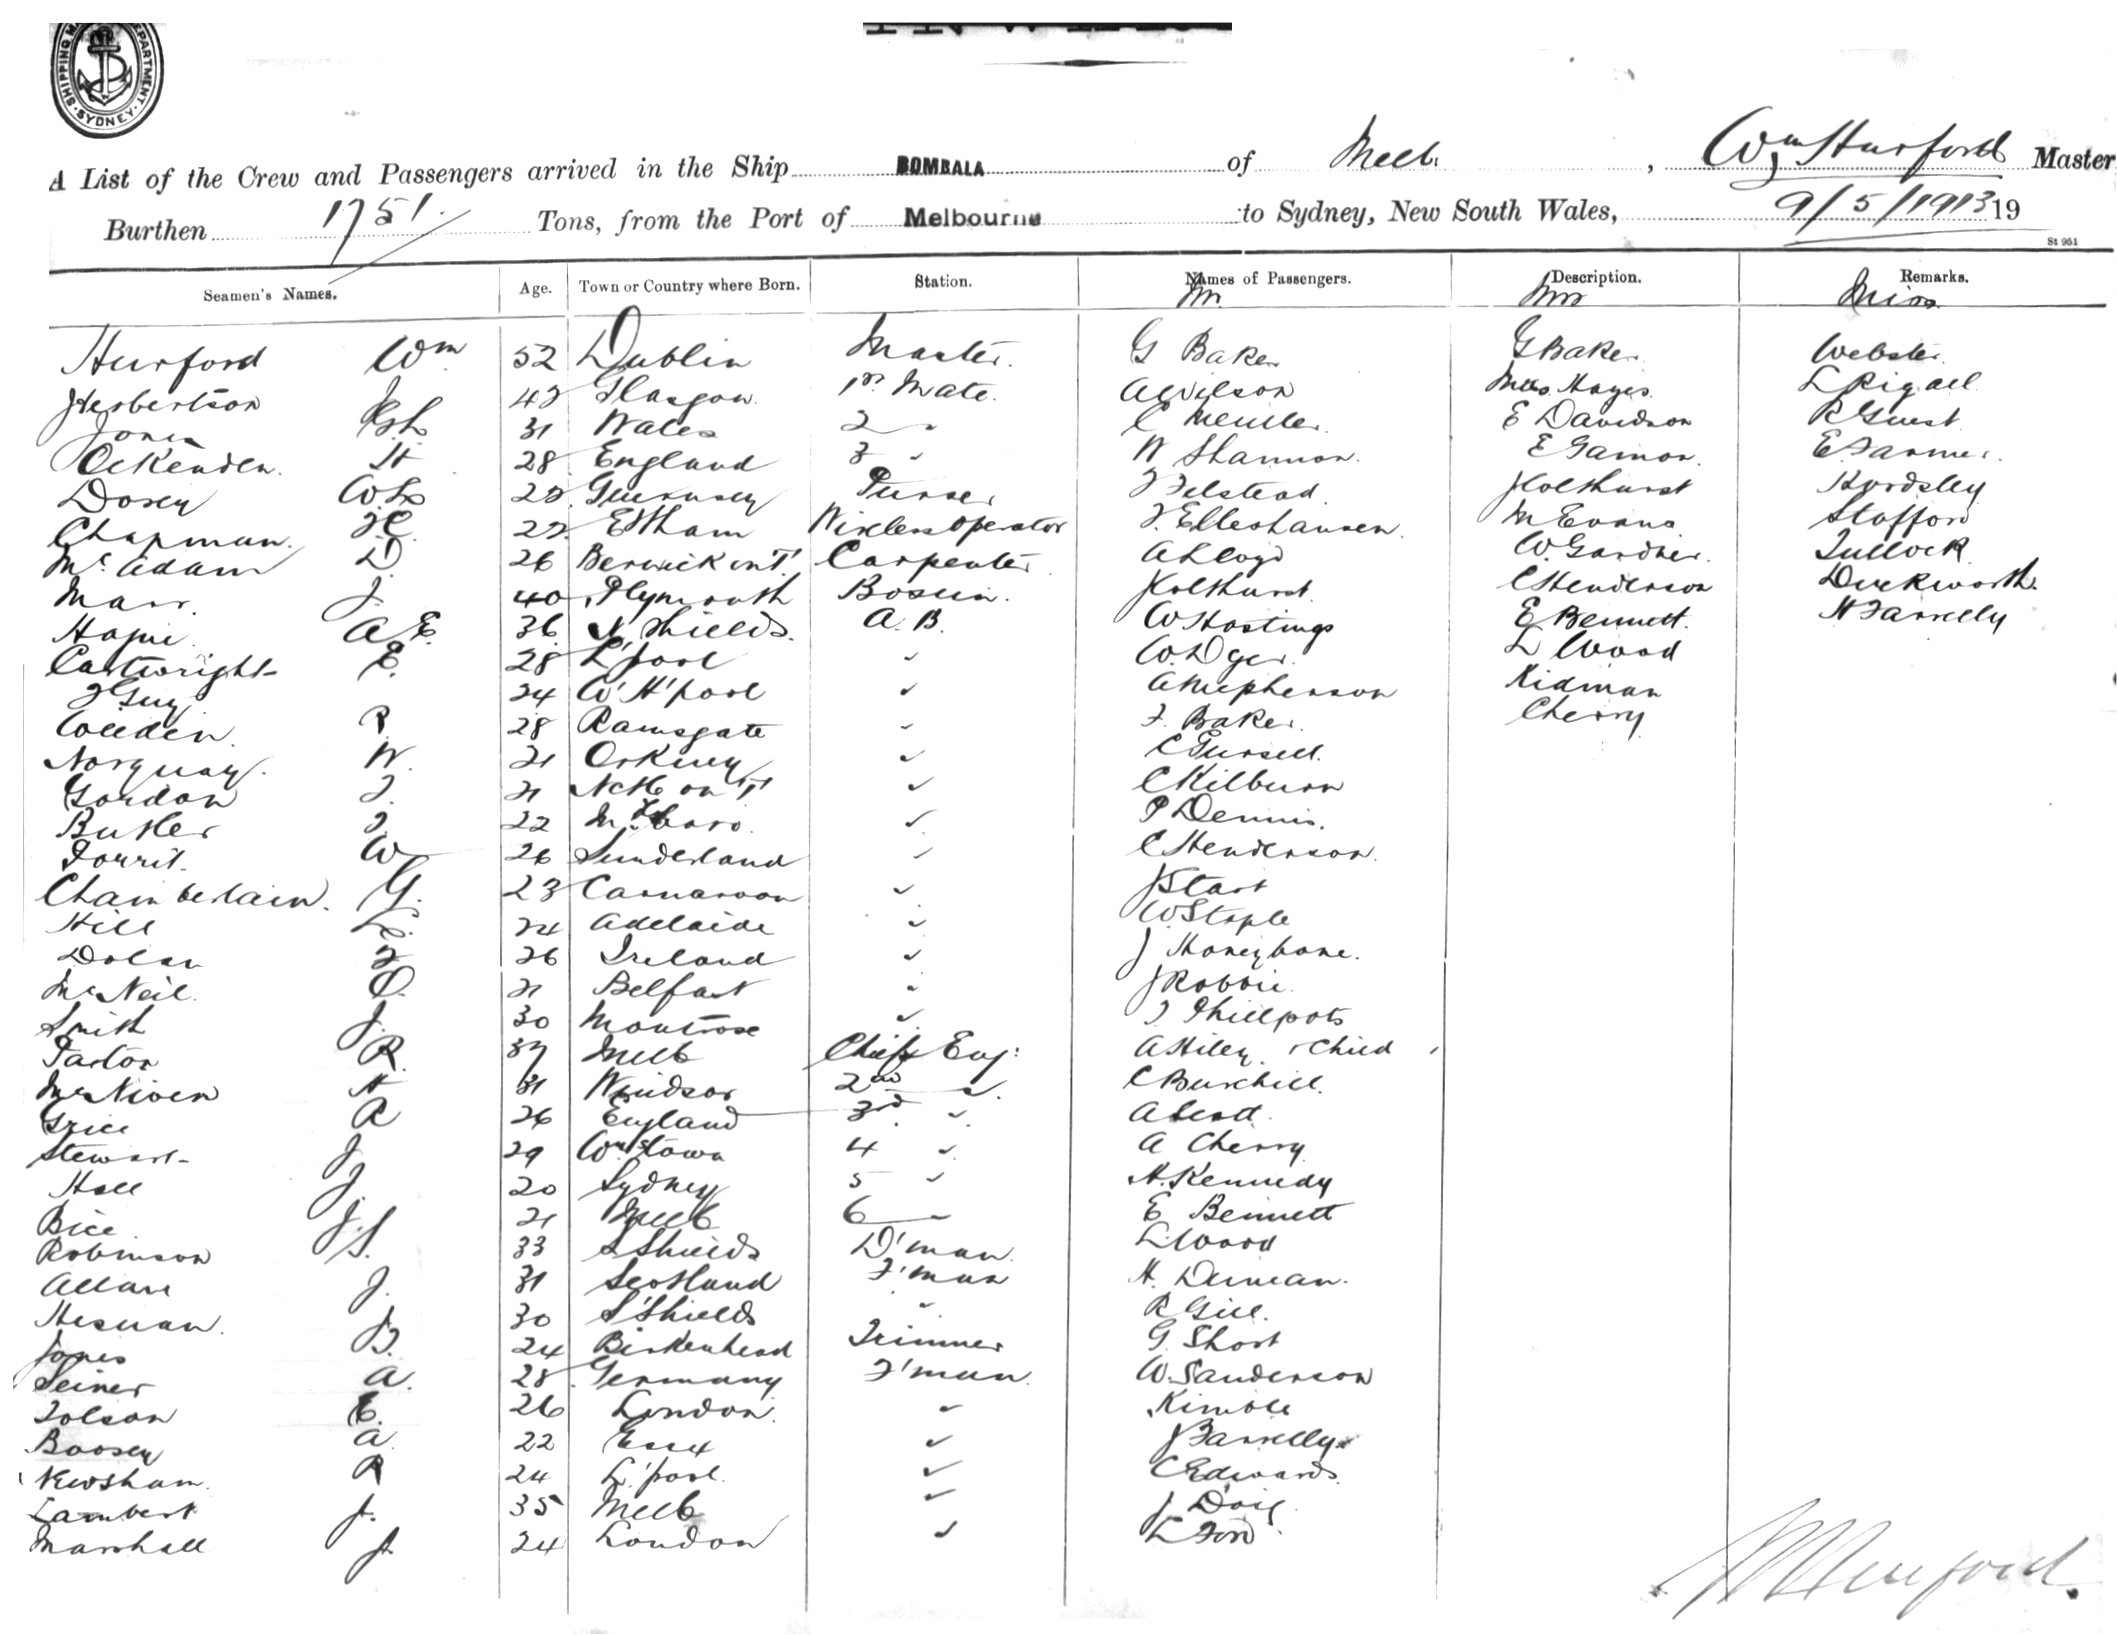 SHIPPING M DEPARTMENT SYDNEY
A List of the Crew and Passengers arrived in the Ship BOMBALA of Melb. , Wm Hurford Master
Burthen 1751 Tons, from the Port of Melbourne to Sydney, New South Wales, 9/5/1913 19
St 951
Seamen's Names. Age. Town or Country where Born. Station. Names of Passengers. Description. Remarks.
Mr Mrs Miss
Hurford Wm 52 Dublin Master. G Baker G Baker Webster
Herbertson J 42 Glasgow 1st Mate. A Wilson Hayes L Rigall
Jones 31 Wales 2 " C E Davidson R Guest
Ockenden H 28 England 3 " W Shannon E Gamon E Farmer
Dorey 28 Guernsey Purser F Felstead J Colthurst Hordsley
Chapman 22 Eltham Wireless Operator F. Elleshausen M Evans Stafford
McAdam D 26 Berwick on T Carpenter A Lloyd W Gardner Tullock
Marr J. 40 Plymouth Bosun J Colthurst C Henderson Duckworth
A E. 36 N Shields A. B. W Hastings E Bennett H Farrelly
Cartwright E. 28 L'pool " W. Dyer L Wood
F Guy 24 W' H'pool " A McPherson Kidman
R 28 Ramsgate " F. Baker Cherry
Norquay W. 21 Orkney " C Gursell
Gordon J. 21 N'cle on T " C Kilburn
Butler J 22 M'boro " P Dennis
W 26 Sunderland " C Henderson
Chamberlain G. 23 Carnarvon " J Start
Hill L. 24 Adelaide " W Staple
Dolan F 26 Ireland " J Honeybone
McNeil O. 21 Belfast " J Robbie
Smith J. 30 Montrose " J Phillpots
Parton R. 37 Melb Chief Eng: A Hiley & Child
McNiven A 31 Windsor 2nd " C Burchill
Grice R 26 England 3rd " A Scott
Stewart J 29 Wmstown 4 " A Cherry
Hall J 20 Sydney 5 " H. Kennedy
Bice J. 21 Melb 6 " E Bennett
Robinson J S. 33 S Shields D'man L. Wood
Allan J. 31 Scotland F'man H. Duncan
Hesnan 30 S'Shields " R Gill
Jones B. 24 Birkenhead Trimmer G. Short
Seiner A. 28 Germany F'man W. Sanderson
Tolson E. 26 London " Kimble
Boosey A 22 Essex " J Farrelly
Newsham R 24 L'pool " C Edwards
Lambert J. 35 Melb " J Doig
Marshall J 24 London " L Ford
Wm Hurford